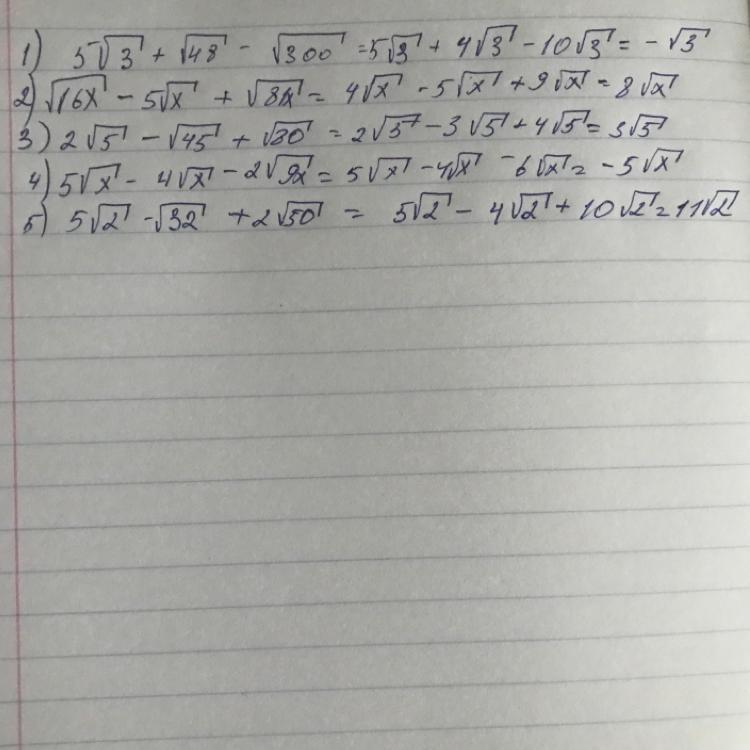 1) 5√3 + √48 - √300 = 5√3 + 4√3 - 10√3 = - √3
2) √16x - 5√x + √81x = 4√x - 5√x + 9√x = 8√x
3) 2√5 - √45 + √80 = 2√5 - 3√5 + 4√5 = 3√5
4) 5√x - 4√x - 2√9x = 5√x - 4√x - 6√x = - 5√x
5) 5√2 - √32 + 2√50 = 5√2 - 4√2 + 10√2 = 11√2